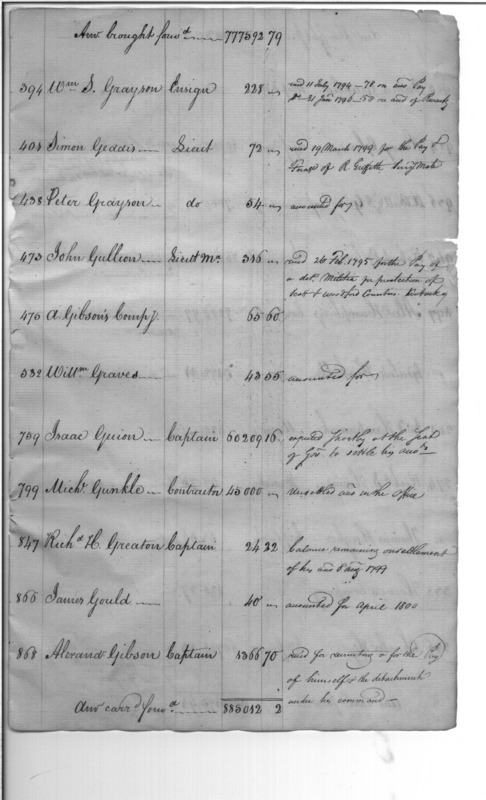 Amt brought forwd 777592 79
394 Wm S. Grayson Ensign 228 " recd 11 July 1794 - 78 on acct Pay
Do 21 Jany 1796 - 50 on acct of Bounty
404 Simon Geddis Lieut 72 " recd 19 March 1799 for the Pay &
Forage of R Griffeth Surgs Mate
438 Peter Grayson do 54 " accounted for
473 John Gullion Lieut Ma 316 " recd 26 Feb 1795 for the Pay of
a det. Militia for protection of
Scot & Woodford Counties Kentucky
475 A Gibson's Compy 65 60
532 Willm Graves 43 55 accounted for
759 Isaac Guion Captain 60209 16 expected shortly at the Seat
of Govt to settle his accts
799 Michl Gunkle Contractor 45000 " Unsettled accts in the Office
847 Richd H. Greaton Captain 24 22 balance remaining on settlement
of his acct 8 Aug 1799
866 James Gould 40 " accounted for April 1800
868 Alexandr Gibson Captain 1366 70 recd for recruiting & for the Pay
of himself & the detachment
under his command
Amt carrd forwd 885012 2